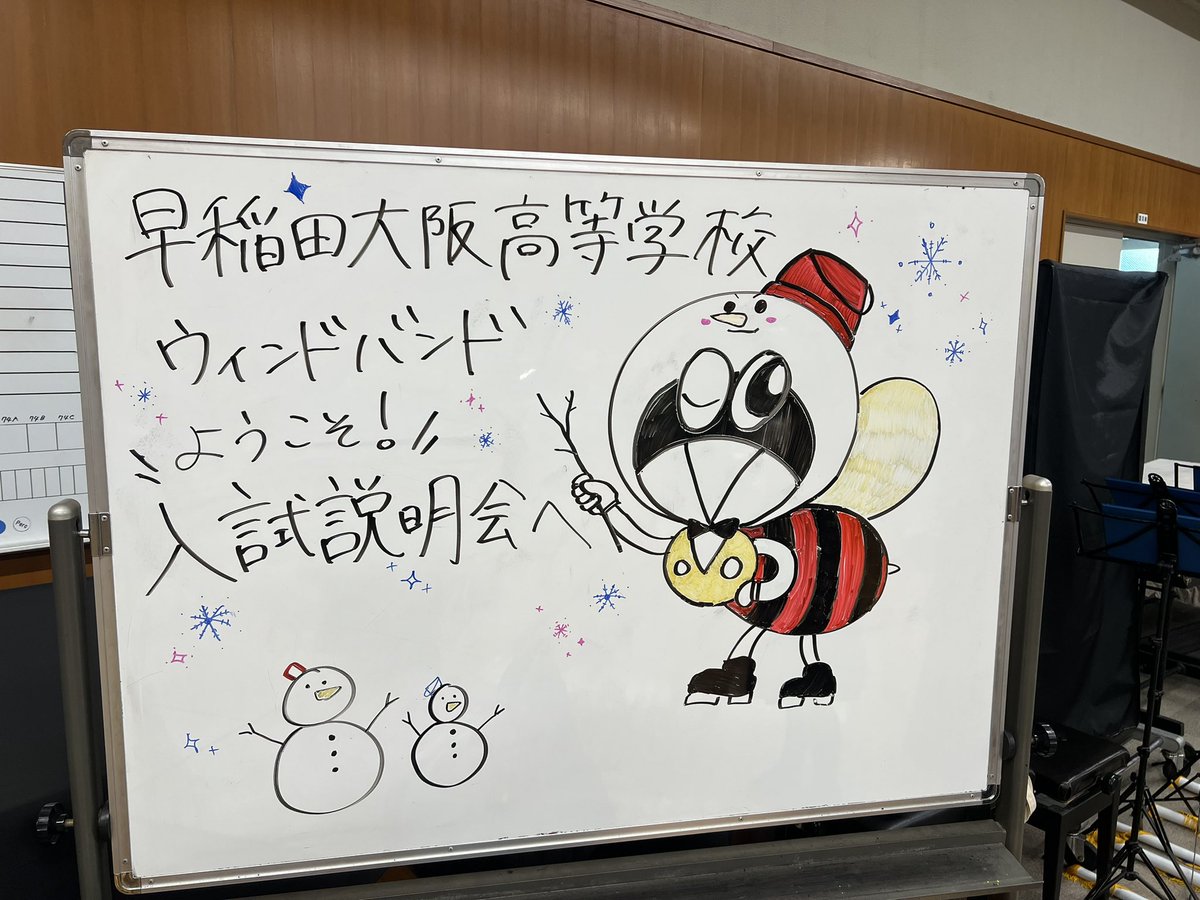 早稲田大阪高等学校
ウィンドバンド
ようこそ!
入試説明会へ
74A 74B 74C